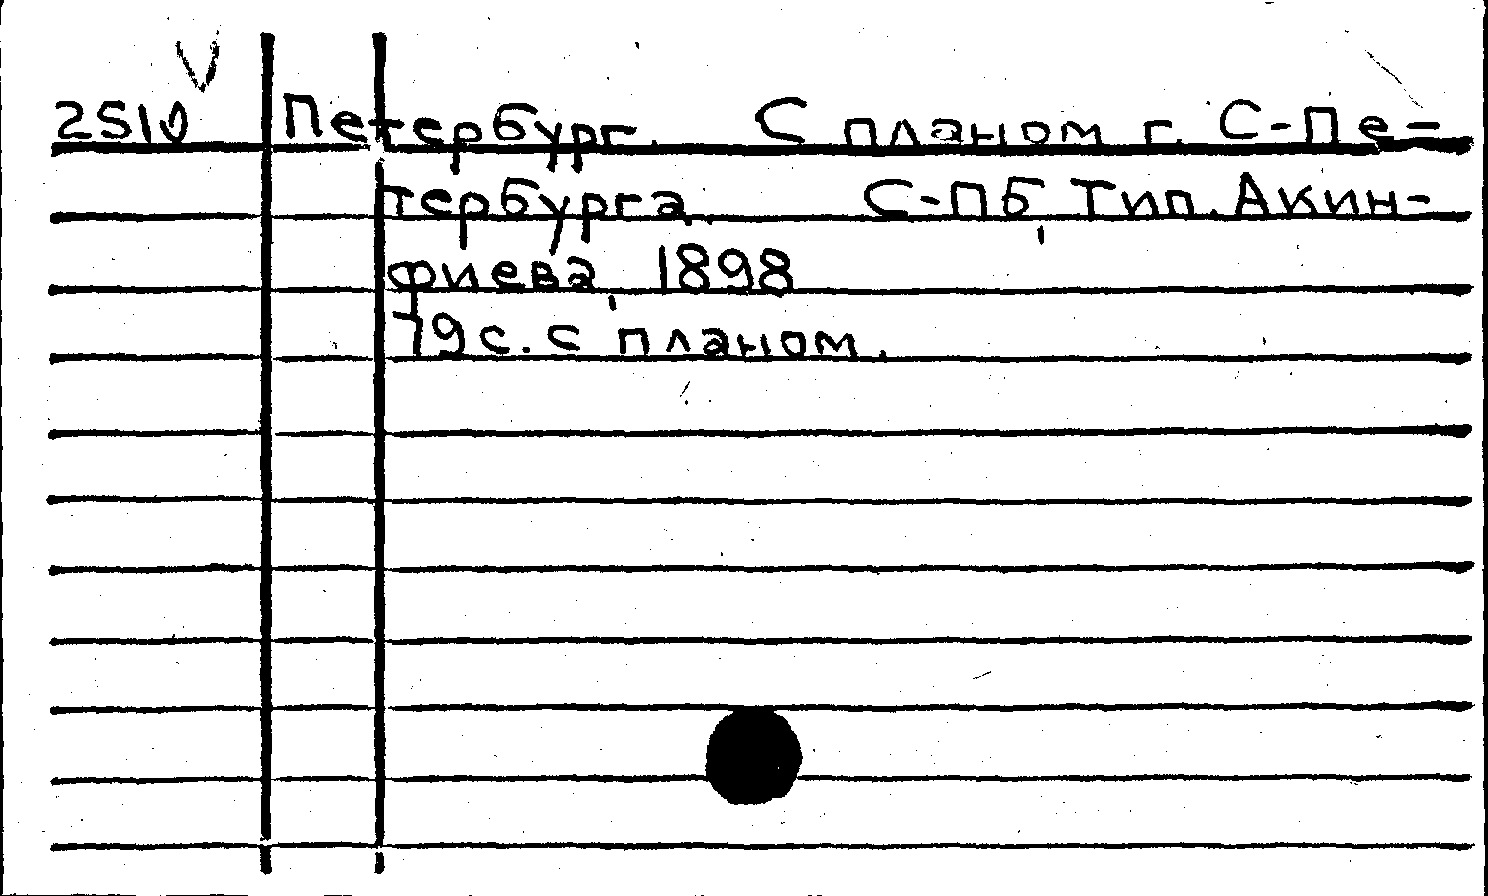 V
2510 Петербург. С планом г. С-Пе-
тербурга. С-ПБ, Тип. Акин-
фиева, 1898
79 с. с планом.